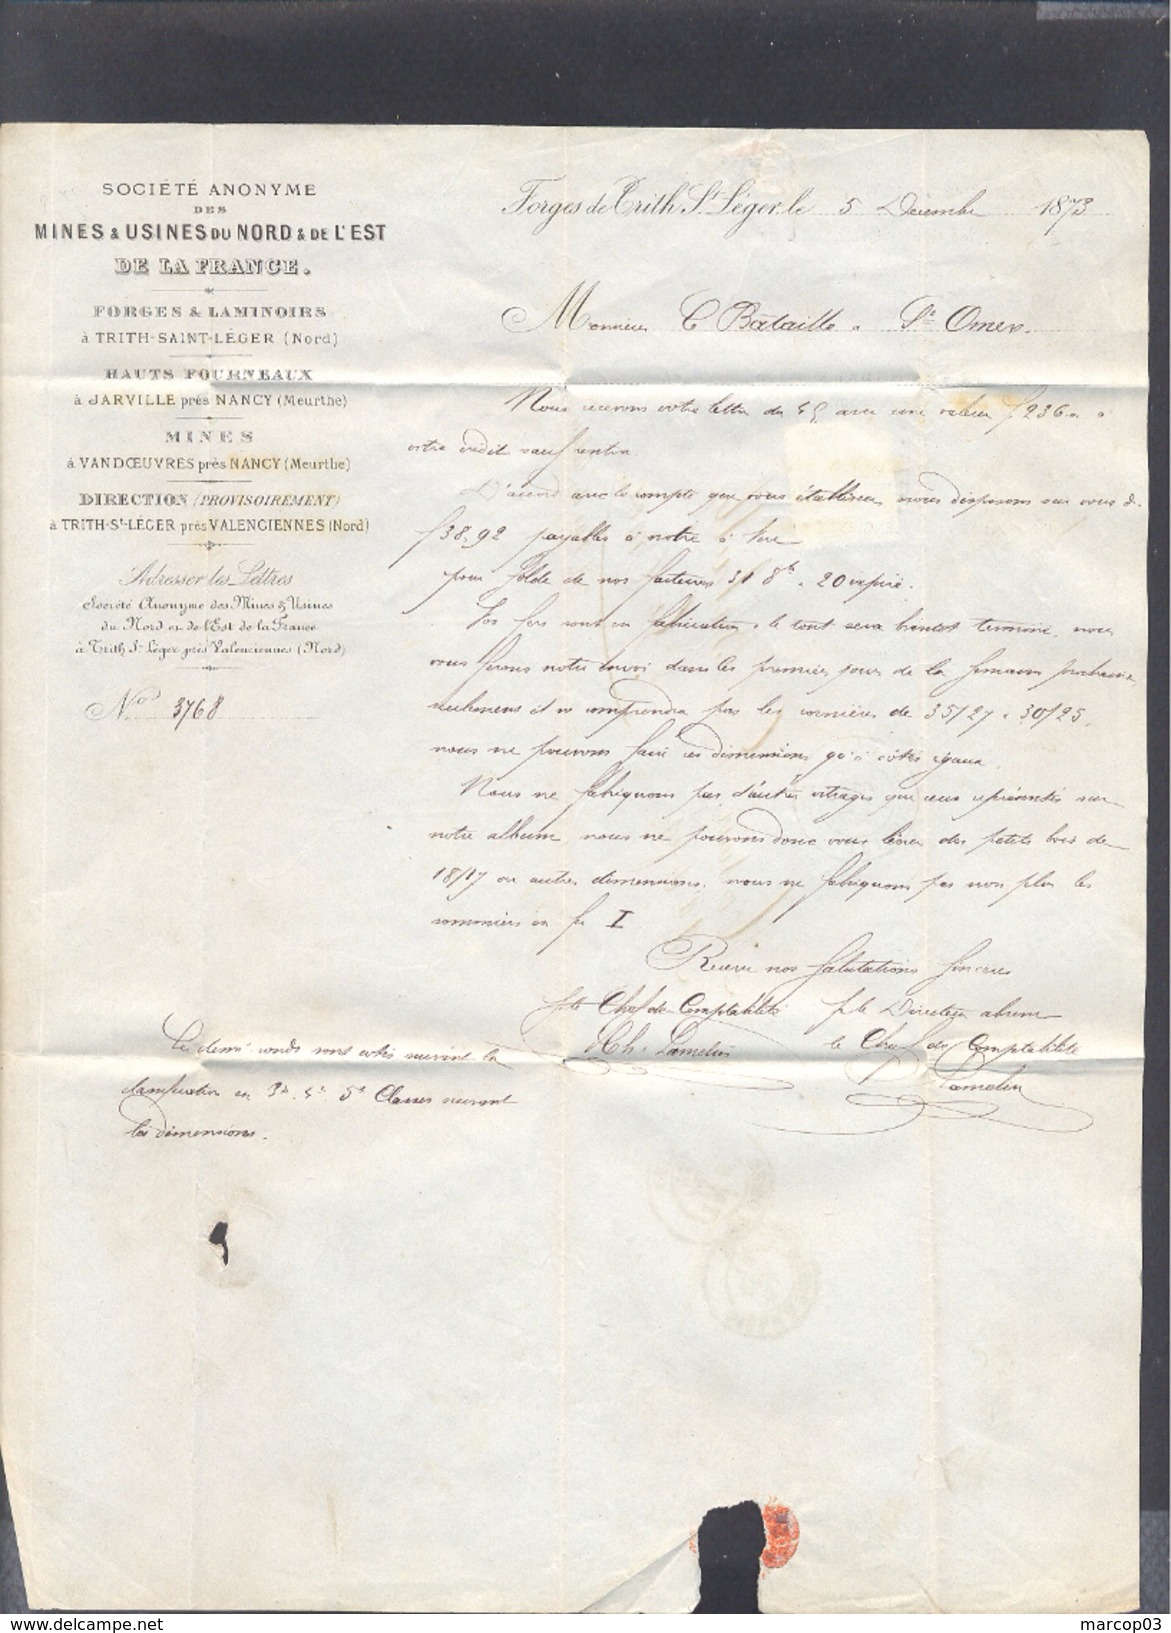 SOCIÉTÉ ANONYME
DES
MINES & USINES DU NORD & DE L'EST
DE LA FRANCE.
FORGES & LAMINOIRS
à TRITH-SAINT-LÉGER (Nord)
HAUTS FOURNEAUX
à JARVILLE près NANCY (Meurthe)
MINES
à VANDŒUVRES près NANCY (Meurthe)
DIRECTION (PROVISOIREMENT)
à TRITH-St-LÉGER près VALENCIENNES (Nord)
Adresser les Lettres
Société Anonyme des Mines & Usines
du Nord et de l'Est de la France
à Trith St Léger près Valenciennes (Nord)
Nos 3768
Forges de Trith St Léger, le 5 Décembre 1873
Monsieur C Bataille à St Omer.
Nous recevons votre lettre du 4 avec une valeur f 236 à
votre crédit sauf rentrée
D'accord avec le compte que vous établissez nous disposons sur vous de
f 38,92 payables à notre à vue
pour solde de nos factures 31 8bre 20 expiré.
Vos fers sont en fabrication, le tout sera bientôt terminé, nous
vous ferons notre envoi dans les premiers jours de la semaine prochaine
seulement il ne comprendra pas les cornières de 35/27 & 30/25,
nous ne pouvons faire ces dimensions qu'à côtés égaux.
Nous ne fabriquons pas d'autres vitrages que ceux représentés sur
notre album nous ne pouvons donc vous livrer des petits bois de
18/17 ou autres dimensions, nous ne fabriquons pas non plus les
sommiers en fer I
Recevez nos salutations sincères
p le Chef de Comptabilité p le Directeur absent
Ch. Lamelin le Chef de Comptabilité
Lamelin
Les demi-ronds sont cotés suivant la
classification en 3e, 4e, 5e Classes suivant
les dimensions.
marcop03